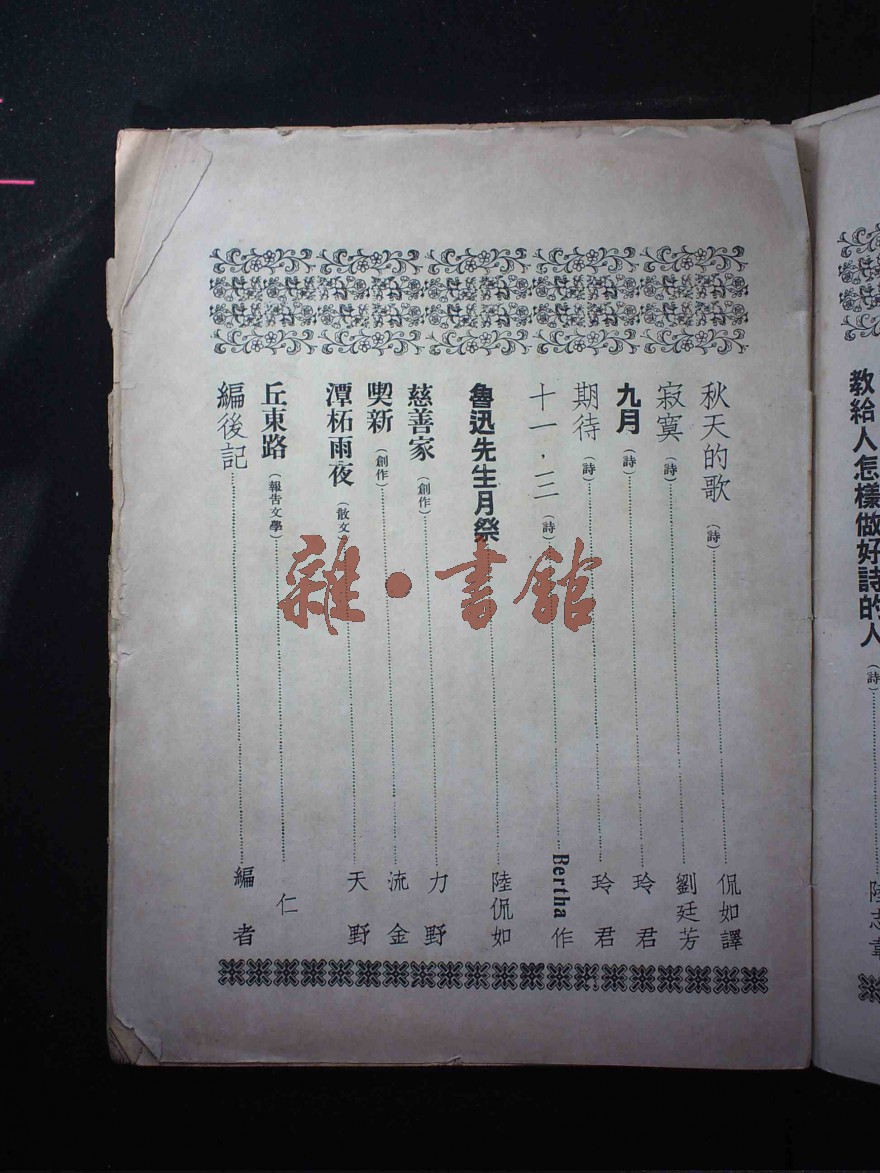 教給人怎樣做好詩的人（詩）陸志韋
秋天的歌（詩）侃如譯
寂寞（詩）劉廷芳
九月（詩）玲君
期待（詩）玲君
十一．一二（詩）Bertha作
魯迅先生月祭陸侃如
慈善家（創作）力野
喫新（創作）流金
潭柘雨夜（散文天野
丘東路（報告文學）仁
編後記編者
雜·書館